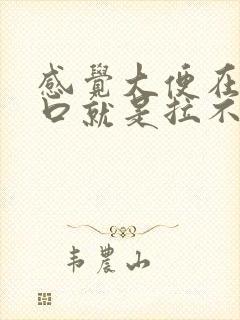 感覺大便在
口就是拉不
韦農山